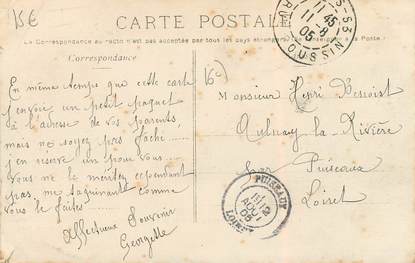 15€
CARTE POSTALE
La Correspondance au recto n'est pas acceptée par tous les pays étrangers. à la Poste.)
Correspondance
En même temps que cette carte
j'envoie un petit paquet
à l'adresse de vos parents,
mais ne soyez pas fâché........
j'en réserve un pour vous....
Vous ne le méritez cependant
pas, me taquinant comme
vous le faites.
Affectueux Souvenir
Georgette
Monsieur Henri
Aulnay-la-Rivière
par Puiseaux
Loiret
11-8
05
PUISEAUX
AOUT
05
LOIRET